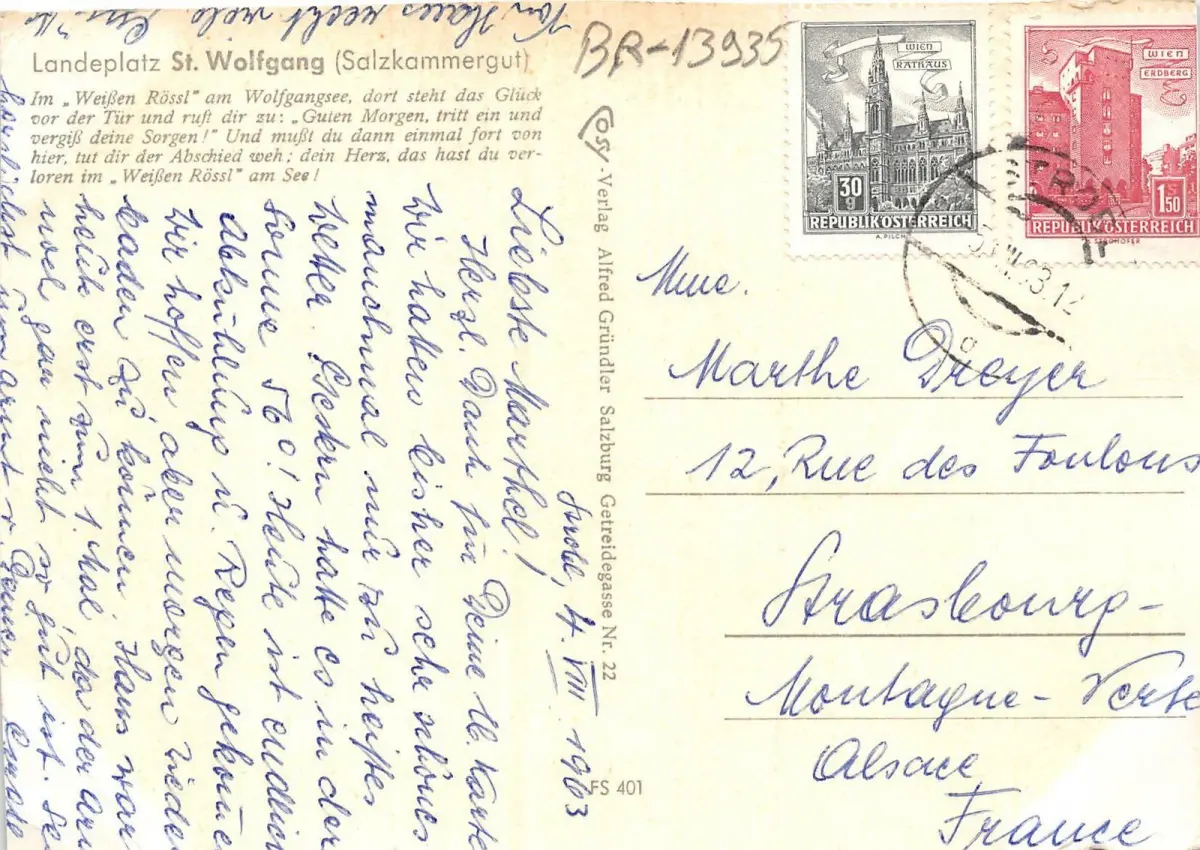 Von Haus recht viele
BR-13935
Landeplatz St. Wolfgang (Salzkammergut)
Im „Weißen Rössl" am Wolfgangsee, dort steht das Glück
vor der Tür und ruft dir zu: „Guten Morgen, tritt ein und
vergiß deine Sorgen!" Und mußt du dann einmal fort von
hier, tut dir der Abschied weh; dein Herz, das hast du ver-
loren im „Weißen Rössl" am See!
WIEN
RATHAUS
30
g
REPUBLIK ÖSTERREICH
A. PILCH
WIEN
ERDBERG
S
1.50
REPUBLIK ÖSTERREICH
Cosy-Verlag Alfred Gründler Salzburg Getreidegasse Nr. 22
FS 401
4. VIII 1963
Liebste Marthel!
Herzl. Dank für Deine lb. Karte
Wir hatten bisher sehr schönes
manchmal nur zu heißes
Wetter. Gestern hatte es in der
Sonne 56°! Heute ist endlich
Abkühlung u. Regen gekomme
Wir hoffen aber morgen wieder
baden zu können. Hans war
heute erst zum 1. Mal, da der Arm
noch gar nicht so gut ist. Sei
herzlichst umarmt v. Deiner
Mme.
Marthe Dreyer
12, Rue des Foulons
Strasbourg-
Montagne-Verte
Alsace
France